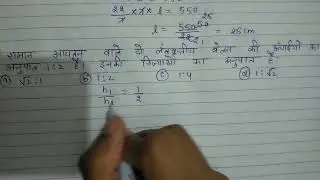 22/7 × 7 × l = 550
l = 550/22 = 25 cm
समान आयतन वाले दो बेलनाकार बेलन की ऊँचाईयों का
अनुपात 1:2 है। इनकी त्रिज्याओं का अनुपात है:
(a) √2:1 (b) 1:2 (c) 1:4 (d) 1:√2
h₁/h₂ = 1/2